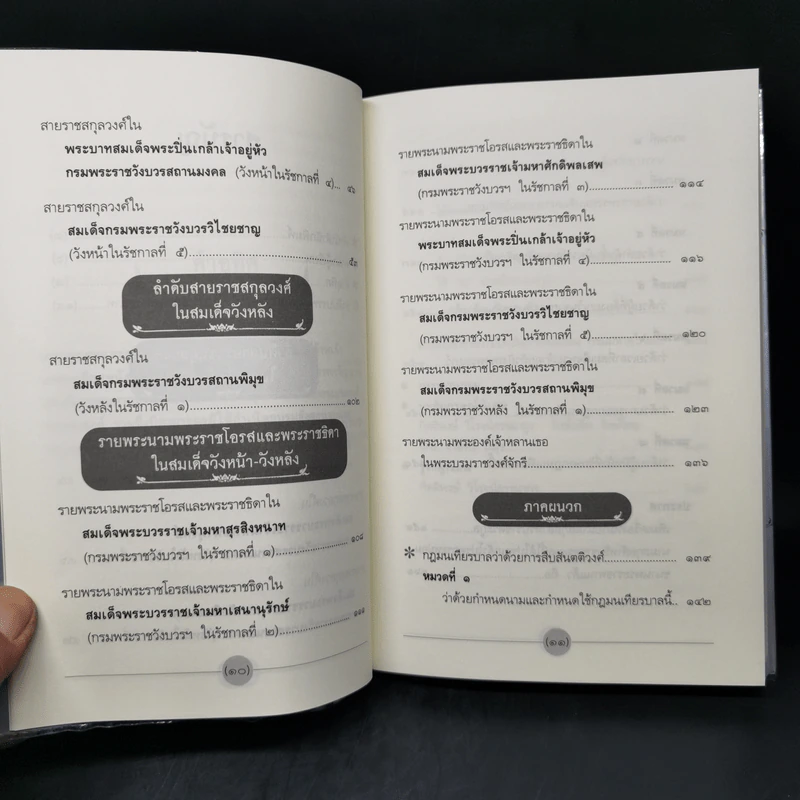 สายราชสกุลวงศ์ใน
พระบาทสมเด็จพระปิ่นเกล้าเจ้าอยู่หัว
กรมพระราชวังบวรสถานมงคล (วังหน้าในรัชกาลที่ ๔)... ๔๖
สายราชสกุลวงศ์ใน
สมเด็จกรมพระราชวังบวรวิไชยชาญ
(วังหน้าในรัชกาลที่ ๕)............................................. ๕๓
ลำดับสายราชสกุลวงศ์
ในสมเด็จวังหลัง
สายราชสกุลวงศ์ใน
สมเด็จกรมพระราชวังบวรสถานพิมุข
(วังหลังในรัชกาลที่ ๑)............................................. ๑๐๒
รายพระนามพระราชโอรสและพระราชธิดา
ในสมเด็จวังหน้า-วังหลัง
รายพระนามพระราชโอรสและพระราชธิดาใน
สมเด็จพระบวรราชเจ้ามหาสุรสิงหนาท
(กรมพระราชวังบวรฯ ในรัชกาลที่ ๑)...................... ๑๐๘
รายพระนามพระราชโอรสและพระราชธิดาใน
สมเด็จพระบวรราชเจ้ามหาเสนานุรักษ์
(กรมพระราชวังบวรฯ ในรัชกาลที่ ๒)......................
(๑๐)
รายพระนามพระราชโอรสและพระราชธิดาใน
สมเด็จพระบวรราชเจ้ามหาศักดิพลเสพ
(กรมพระราชวังบวรฯ ในรัชกาลที่ ๓)...................... ๑๑๔
รายพระนามพระราชโอรสและพระราชธิดาใน
พระบาทสมเด็จพระปิ่นเกล้าเจ้าอยู่หัว
(กรมพระราชวังบวรฯ ในรัชกาลที่ ๔)...................... ๑๑๖
รายพระนามพระราชโอรสและพระราชธิดาใน
สมเด็จกรมพระราชวังบวรวิไชยชาญ
(กรมพระราชวังบวรฯ ในรัชกาลที่ ๕)...................... ๑๒๐
รายพระนามพระราชโอรสและพระราชธิดาใน
สมเด็จกรมพระราชวังบวรสถานพิมุข
(กรมพระราชวังหลัง ในรัชกาลที่ ๑)...................... ๑๒๓
รายพระนามพระองค์เจ้าหลานเธอ
ในพระบรมราชวงศ์จักรี............................................. ๑๓๖
ภาคผนวก
* กฎมนเทียรบาลว่าด้วยการสืบสันตติวงศ์...................... ๑๓๙
หมวดที่ ๑
ว่าด้วยกำหนดนามและกำหนดใช้กฎมนเทียรบาลนี้.. ๑๔๒
(๑๑)